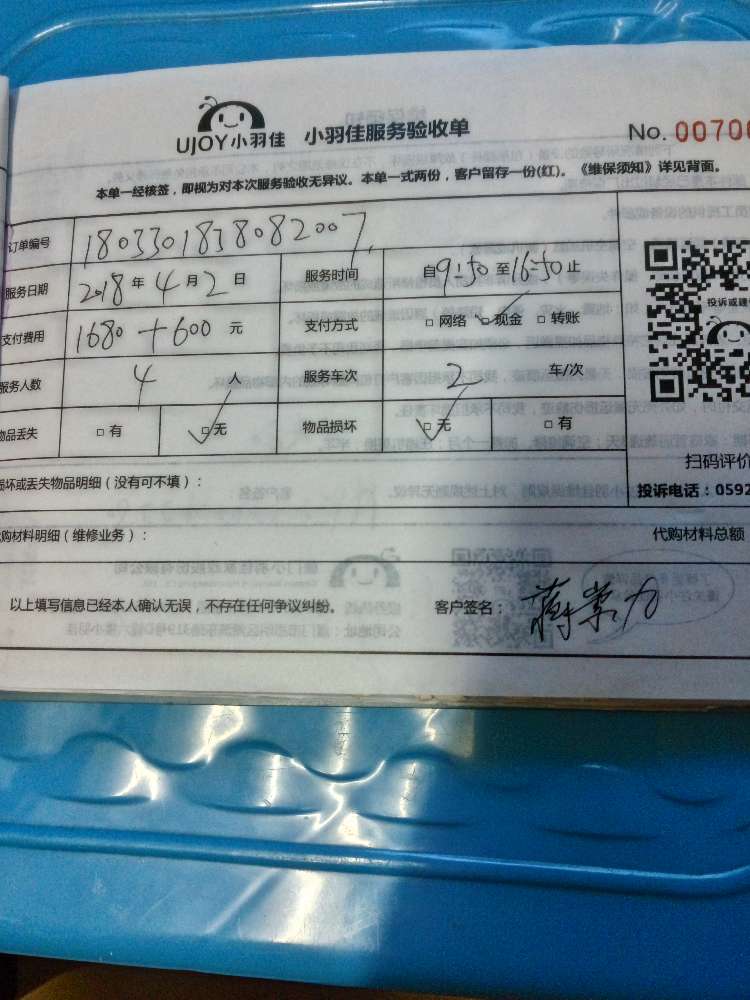 UJOY小羽佳 小羽佳服务验收单 No. 00700
本单一经核签，即视为对本次服务验收无异议。本单一式两份，客户留存一份(红)。《维保须知》详见背面。
订单编号 1803301838082007
服务日期 2018 年 4 月 2 日 服务时间 自 9:50 至 16:50 止
支付费用 1680+600 元 支付方式 □网络 □现金 □转账
服务人数 4 人 服务车次 2 车/次
物品丢失 □有 □无 物品损坏 □无 □有
投诉或建
扫码评价
损坏或丢失物品明细（没有可不填）： 投诉电话：0592
代购材料明细（维修业务）： 代购材料总额
以上填写信息已经本人确认无误，不存在任何争议纠纷。 客户签名：